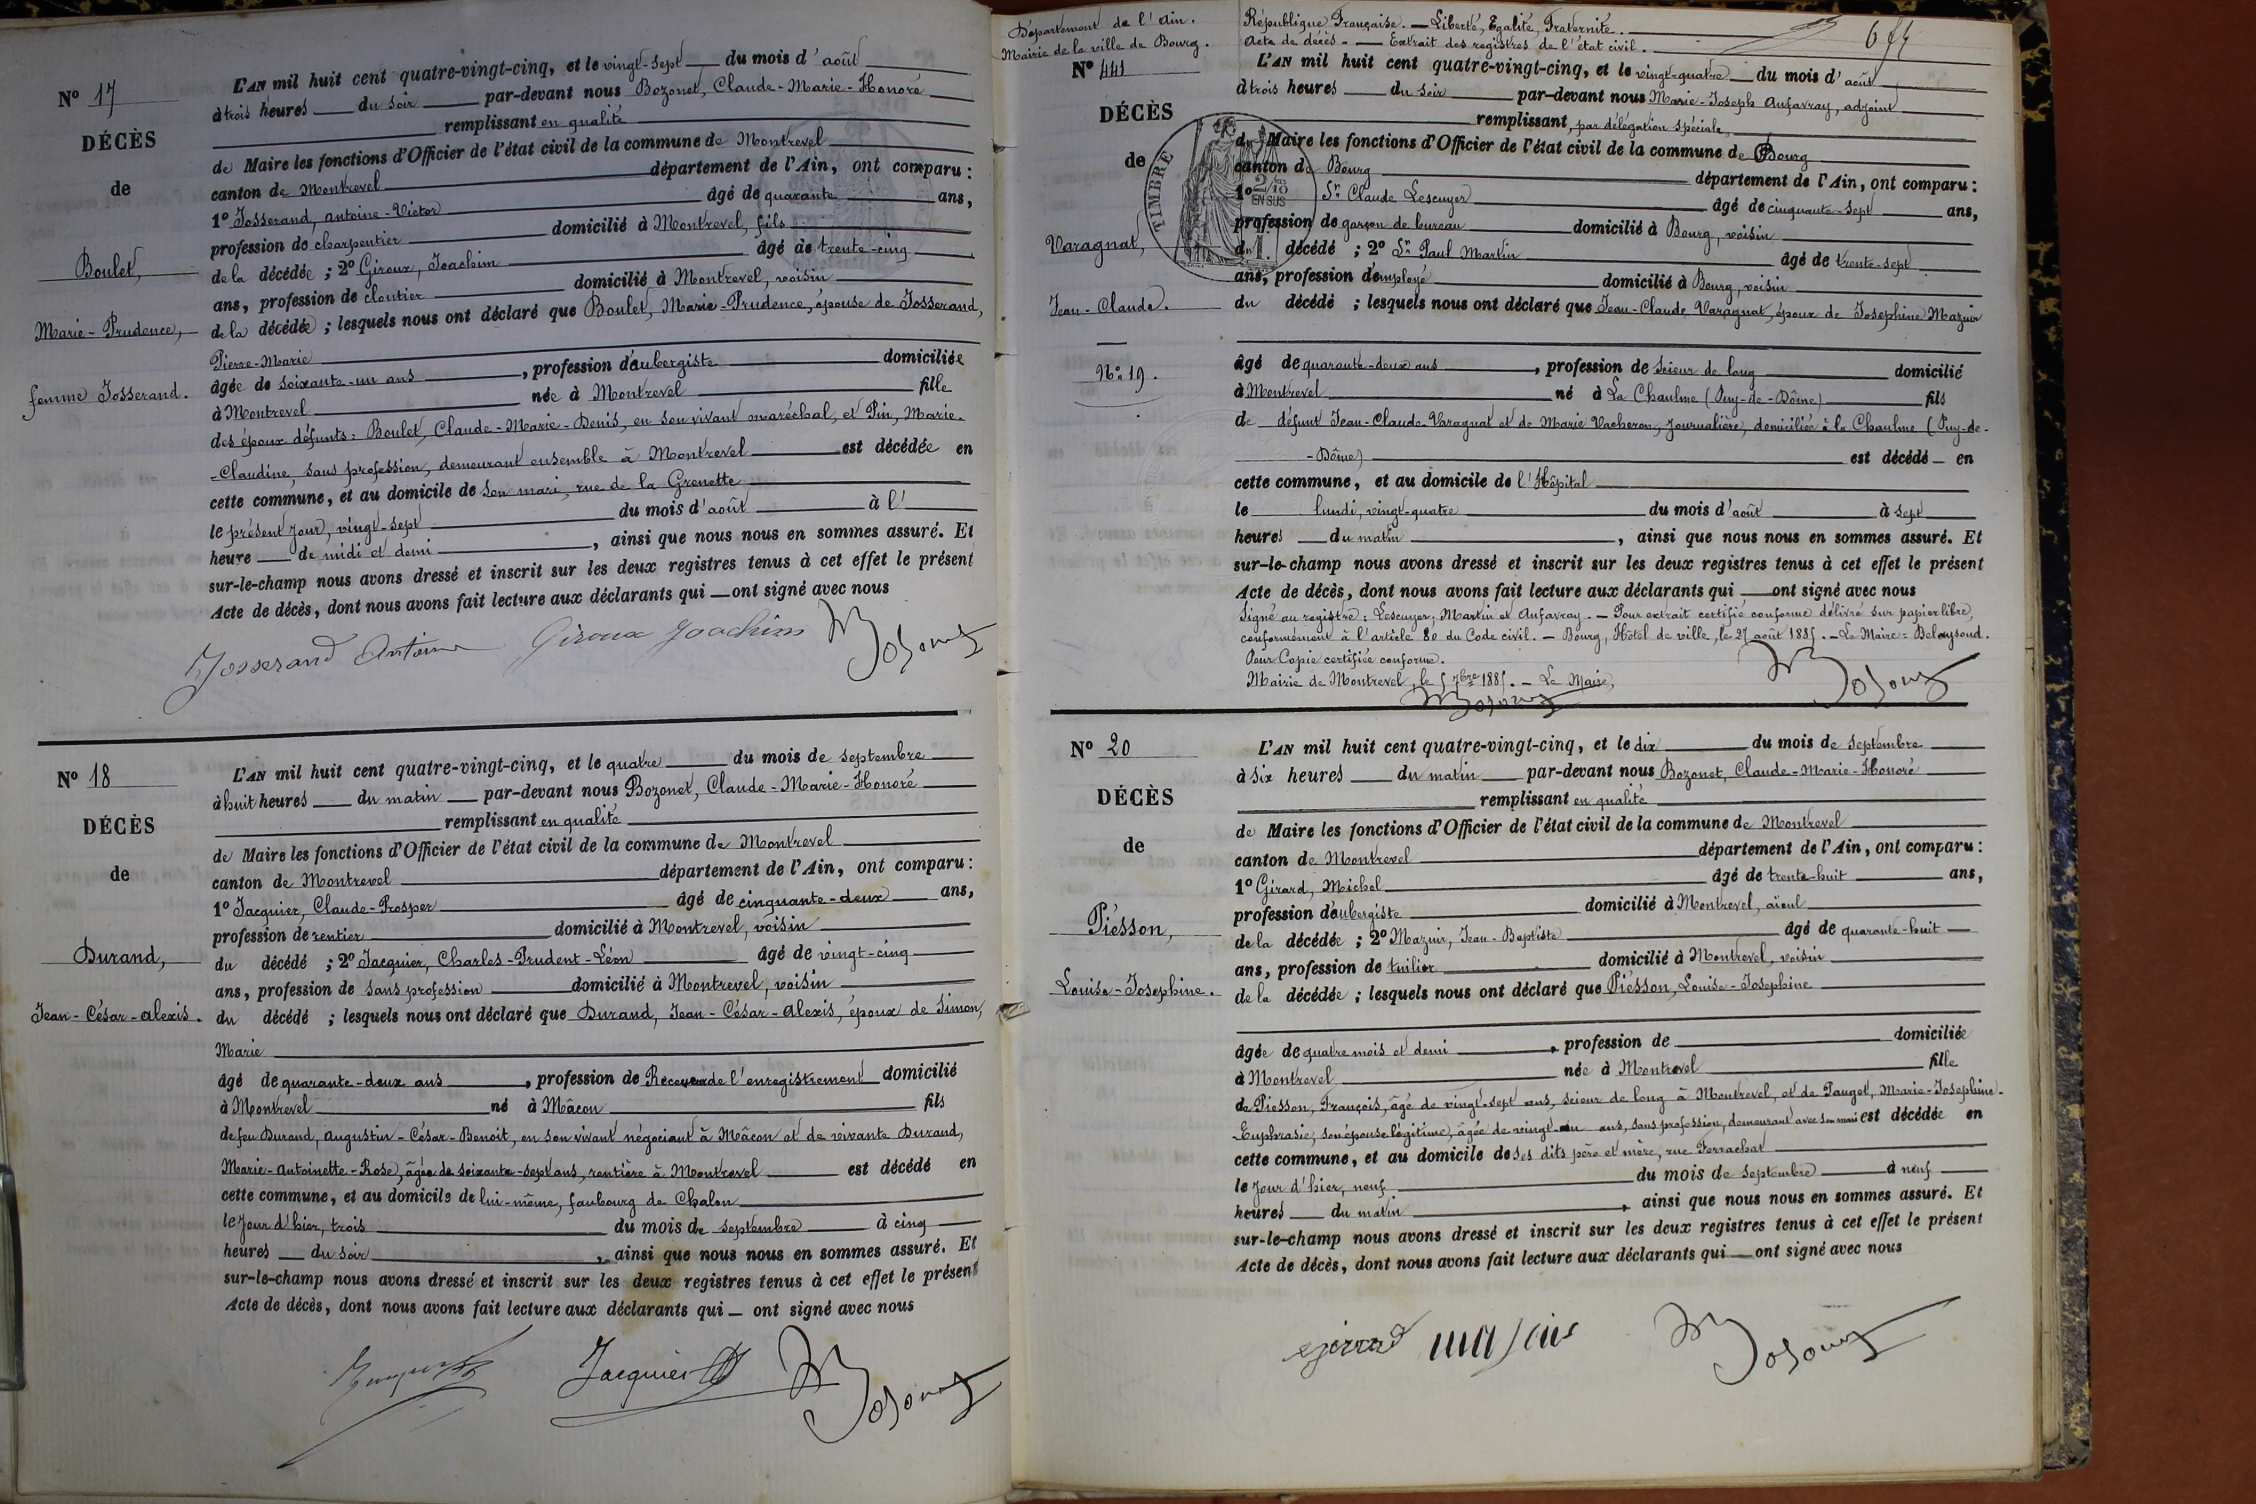 Nº 17
DÉCÈS
de
Boulet,
Marie-Prudence,
femme Josserand.
L'AN mil huit cent quatre-vingt-cinq, et le vingt-sept du mois d'août
à trois heures du soir par-devant nous Bozonet, Claude-Marie-Honoré
remplissant en qualité
de Maire les fonctions d'Officier de l'état civil de la commune de Montrevel
canton de Montrevel département de l'Ain, ont comparu :
1º Josserand, antoine-Victor âgé de quarante ans,
profession de charpentier domicilié à Montrevel, fils
de la décédée ; 2º Giroux, Joachim âgé de trente-cinq
ans, profession de cloutier domicilié à Montrevel, voisin
de la décédée ; lesquels nous ont déclaré que Boulet, Marie-Prudence, épouse de Josserand,
Pierre-Marie
âgée de soixante-un ans, profession d'aubergiste domiciliée
à Montrevel née à Montrevel fille
des époux défunts : Boulet, Claude-Marie-Denis, en son vivant maréchal, et Pin, Marie-
-Claudine, sans profession, demeurant ensemble à Montrevel est décédée en
cette commune, et au domicile de son mari, rue de la Grenette
le présent jour, vingt-sept du mois d'août à l'
heure de midi et demi, ainsi que nous nous en sommes assuré. Et
sur-le-champ nous avons dressé et inscrit sur les deux registres tenus à cet effet le présent
Acte de décès, dont nous avons fait lecture aux déclarants qui ont signé avec nous
Josserand Antoine Giroux Joachim Bozonet
Nº 18
DÉCÈS
de
Durand,
Jean-César-alexis.
L'AN mil huit cent quatre-vingt-cinq, et le quatre du mois de septembre
à huit heures du matin par-devant nous Bozonet, Claude-Marie-Honoré
remplissant en qualité
de Maire les fonctions d'Officier de l'état civil de la commune de Montrevel
canton de Montrevel département de l'Ain, ont comparu :
1º Jacquier, Claude-Prosper âgé de cinquante-deux ans,
profession de rentier domicilié à Montrevel, voisin
du décédé ; 2º Jacquier, Charles-Prudent-Léon âgé de vingt-cinq
ans, profession de sans profession domicilié à Montrevel, voisin
du décédé ; lesquels nous ont déclaré que Durand, Jean-César-alexis, époux de Simon,
Marie
âgé de quarante-deux ans, profession de Receveur de l'enregistrement domicilié
à Montrevel né à Mâcon fils
de feu Durand, augustin-César-Benoit, en son vivant négociant à Mâcon et de vivante Durand,
Marie-antoinette-Rose, âgée de soixante-sept ans, rentière à Montrevel est décédé en
cette commune, et au domicile de lui-même, faubourg de Chalon
le jour d'hier, trois du mois de septembre à cinq
heures du soir, ainsi que nous nous en sommes assuré. Et
sur-le-champ nous avons dressé et inscrit sur les deux registres tenus à cet effet le présent
Acte de décès, dont nous avons fait lecture aux déclarants qui ont signé avec nous
Jacquier Bozonet
Département de l'Ain.
Mairie de la ville de Bourg.
Nº 441
DÉCÈS
de
Varagnat,
Jean-Claude.
Nº 19.
République Française. — Liberté, Egalité, Fraternité.
Acte de décès. — Extrait des registres de l'état civil.
L'AN mil huit cent quatre-vingt-cinq, et le vingt-quatre du mois d'août
à trois heures du soir par-devant nous Marie-Joseph Aufavray, adjoint
remplissant, par délégation spéciale,
du Maire les fonctions d'Officier de l'état civil de la commune de Bourg
canton de Bourg département de l'Ain, ont comparu :
TIMBRE
2/10
EN SUS
1º Sr Claude Lescuyer âgé de cinquante-sept ans,
profession de garçon de bureau domicilié à Bourg, voisin
du décédé ; 2º Sr Paul Martin âgé de trente-sept
ans, profession d'employé domicilié à Bourg, voisin
du décédé ; lesquels nous ont déclaré que Jean-Claude Varagnat, époux de Josephine Mazuir
âgé de quarante-deux ans, profession de scieur de long domicilié
à Montrevel né à La Chaulme (Puy-de-Dôme) fils
de défunt Jean-Claude Varagnat et de Marie Vacheron, journalière, domiciliée à la Chaulme (Puy-de-
-Dôme) est décédé en
cette commune, et au domicile de l'Hôpital
le lundi, vingt-quatre du mois d'août à sept
heures du matin, ainsi que nous nous en sommes assuré. Et
sur-le-champ nous avons dressé et inscrit sur les deux registres tenus à cet effet le présent
Acte de décès, dont nous avons fait lecture aux déclarants qui ont signé avec nous
Signé au registre : Lescuyer, Martin et Aufavray. — Pour extrait certifié conforme délivré sur papier libre,
conformément à l'article 80 du Code civil. — Bourg, Hôtel de ville, le 27 août 1885. — Le Maire :
Pour Copie certifiée conforme.
Mairie de Montrevel, le 5 7bre 1885. — Le Maire,
Bozonet Bozonet
Nº 20
DÉCÈS
de
Piésson,
Louise-Josephine.
L'AN mil huit cent quatre-vingt-cinq, et le dix du mois de septembre
à six heures du matin par-devant nous Bozonet, Claude-Marie-Honoré
remplissant en qualité
de Maire les fonctions d'Officier de l'état civil de la commune de Montrevel
canton de Montrevel département de l'Ain, ont comparu :
1º Girard, Michel âgé de trente-huit ans,
profession d'aubergiste domicilié à Montrevel, aïeul
de la décédée ; 2º Mazuir, Jean-Baptiste âgé de quarante-huit
ans, profession de tuilier domicilié à Montrevel, voisin
de la décédée ; lesquels nous ont déclaré que Piésson, Louise-Josephine
âgée de quatre mois et demi, profession de domiciliée
à Montrevel née à Montrevel fille
de Piesson, François, âgé de vingt-sept ans, scieur de long à Montrevel, et de Pauget, Marie-Josephine-
Euphrasie, son épouse légitime, âgée de vingt-un ans, sans profession, demeurant avec son mari est décédée en
cette commune, et au domicile de ses dits père et mère, rue Ferrachat
le jour d'hier, neuf du mois de septembre à neuf
heures du matin, ainsi que nous nous en sommes assuré. Et
sur-le-champ nous avons dressé et inscrit sur les deux registres tenus à cet effet le présent
Acte de décès, dont nous avons fait lecture aux déclarants qui ont signé avec nous
girard mazuir Bozonet